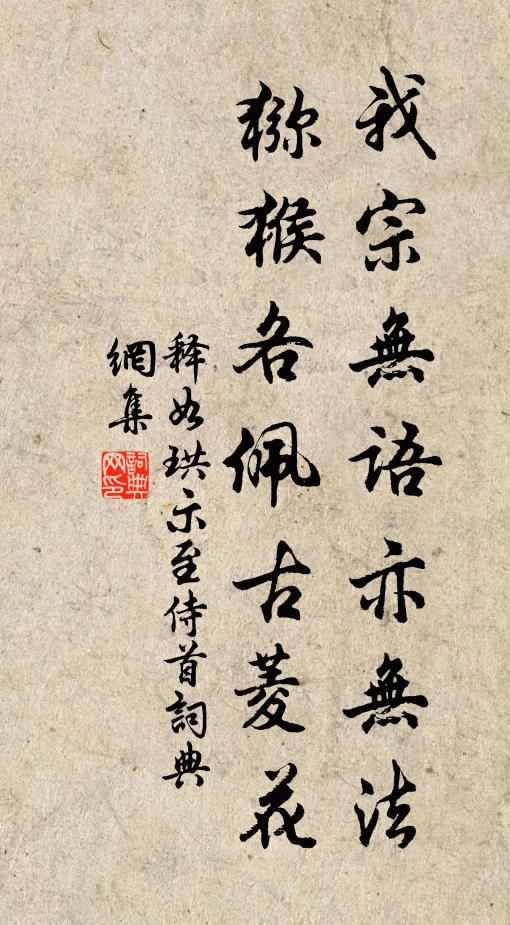 我宗無語亦無法
獼猴各佩古菱花
释如珙示至侍首詞典
網集
詞典
网印